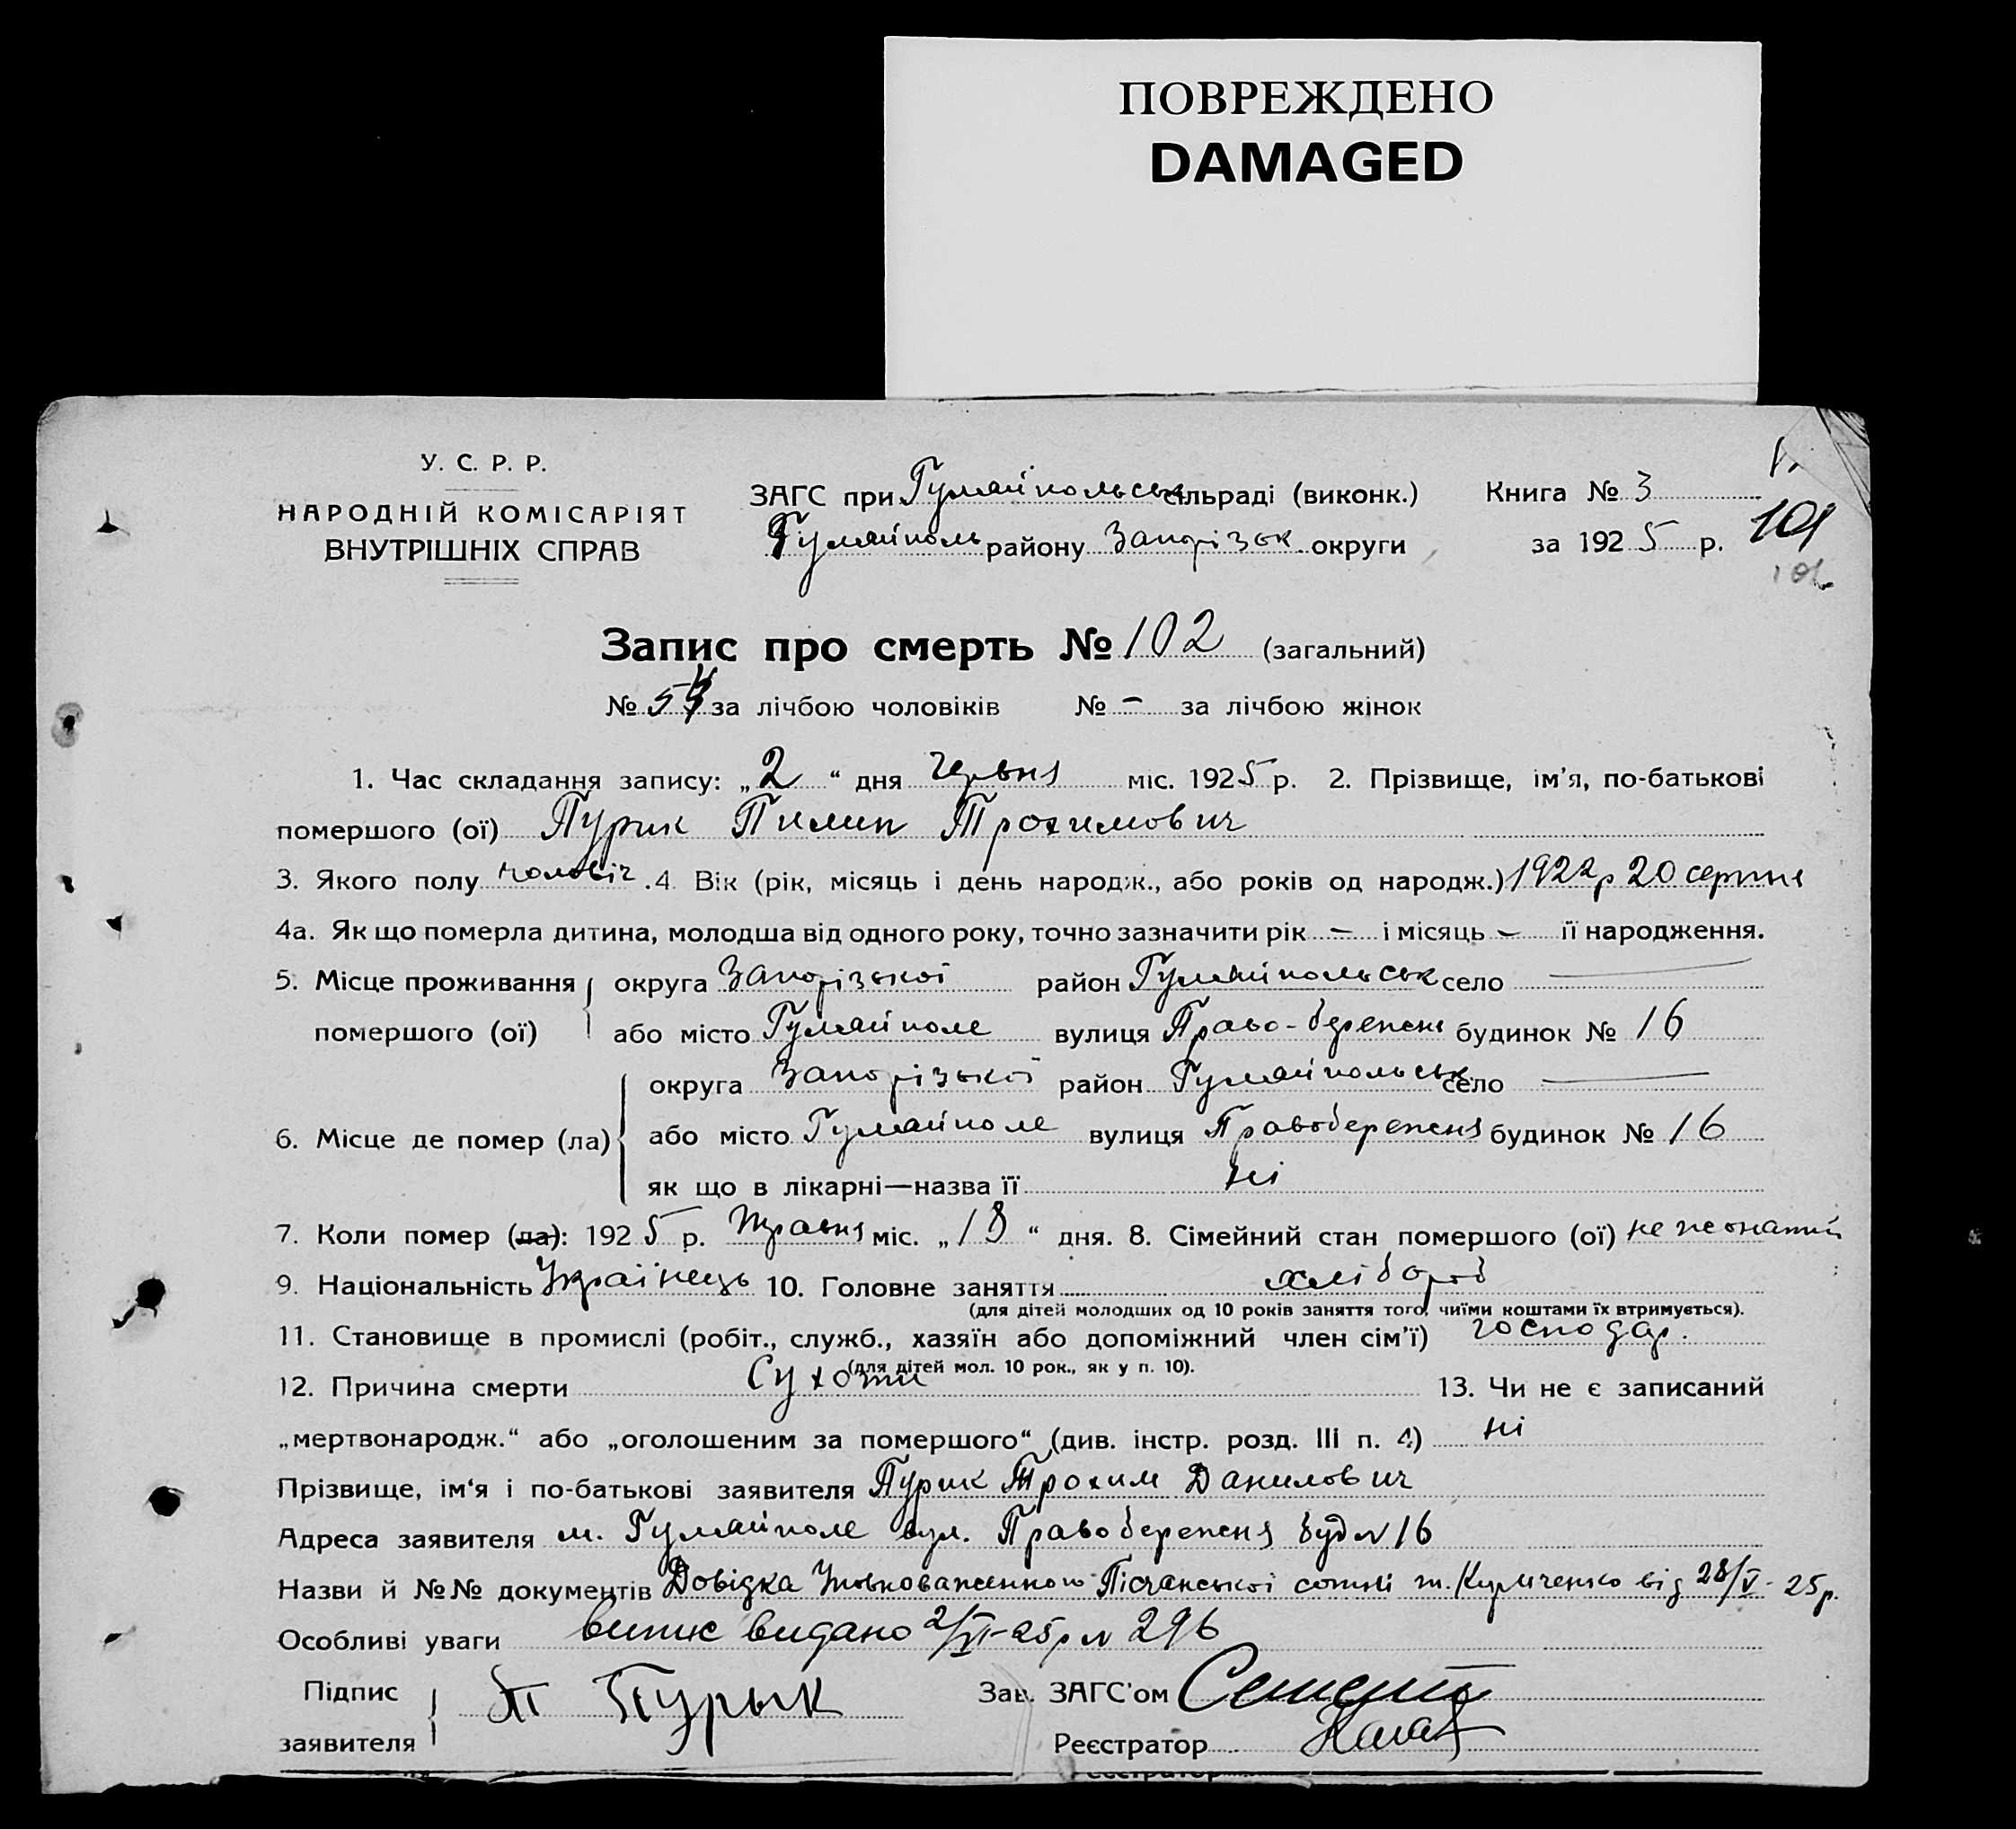 ПОВРЕЖДЕНО
DAMAGED
У. С. Р. Р.
НАРОДНІЙ КОМІСАРІЯТ
ВНУТРІШНІХ СПРАВ
ЗАГС при Гуляйпольськ сільраді (виконк.)
Гуляйполь району Запорізьк. округи
Книга № 3
за 1925 р.
101
Запис про смерть № 102 (загальний)
№ 54 за лічбою чоловіків № – за лічбою жінок
1. Час складання запису: „2“ дня червня міс. 1925 р. 2. Прізвище, ім'я, по-батькові
помершого (ої) Пурик Пилип Трохимович
3. Якого полу чоловіч. 4. Вік (рік, місяць і день народж., або років од народж.) 1922р 20 серпня
4а. Як що померла дитина, молодша від одного року, точно зазначити рік – і місяць – її народження.
5. Місце проживання помершого (ої) округа Запорізької район Гуляйпольськ село —
або місто Гуляйполе вулиця Право-бережня будинок № 16
6. Місце де помер (ла) округа Запорізької район Гуляйпольськ село —
або місто Гуляйполе вулиця Правобережня будинок № 16
як що в лікарні—назва її ні
7. Коли помер (ла): 1925 р. травня міс. „18“ дня. 8. Сімейний стан помершого (ої) не жонатий
9. Національність Українець 10. Головне заняття хлібороб
(для дітей молодших од 10 років заняття того, чиїми коштами їх втримується).
11. Становище в промислі (робіт., служб., хазяїн або допоміжний член сім'ї) господар.
(для дітей мол. 10 рок., як у п. 10).
12. Причина смерти Сухоти 13. Чи не є записаний
„мертвонародж.“ або „оголошеним за помершого“ (див. інстр. розд. III п. 4) ні
Прізвище, ім'я і по-батькові заявителя Пурик Трохим Данилович
Адреса заявителя м. Гуляйполе вул. Правобережня буд № 16
Назви й №№ документів Довідка Уповноваженного Пісчанської сотні т. від 28/V-25р.
Особливі уваги випис видано 2/VI-25р № 296
Підпис заявителя Т Пурык
Зав. ЗАГС'ом
Реєстратор